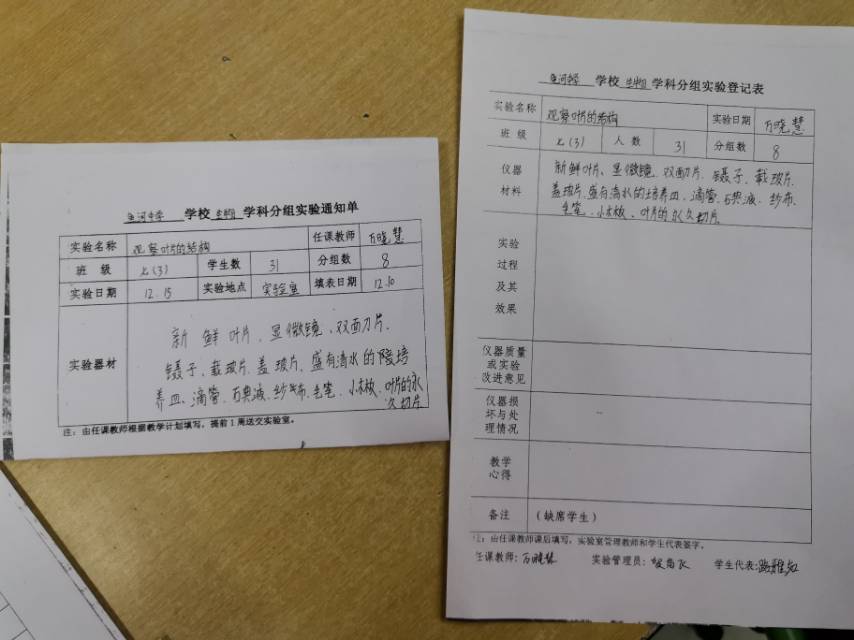 鱼河中学 学校 生物 学科分组实验通知单
实验名称 观察叶片的结构 任课教师 万晓慧
班 级 七(3) 学生数 31 分组数 8
实验日期 12.15 实验地点 实验室 填表日期 12.10
实验器材 新鲜叶片、显微镜、双面刀片、
镊子、载玻片、盖玻片、盛有清水的 培
养皿、滴管、石典液、纱布、毛笔、小木板、叶片的永
久切片
注:由任课教师根据教学计划填写,提前1周送交实验室。
鱼河中学 学校 生物 学科分组实验登记表
实验名称 观察叶片的结构 实验日期 万晓慧
班 级 七(3) 人 数 31 分组数 8
仪器
材料
新鲜叶片、显微镜、双面刀片、镊子、载玻片、
盖玻片、盛有清水的培养皿、滴管、石典液、纱布、
毛笔、小木板、叶片的永久切片
实验
过程
及其
效果
仪器质量
或实验
改进意见
仪器损
坏与处
理情况
教学
心得
备注 (缺席学生)
注:由任课教师课后填写,实验室管理教师和学生代表签字。
任课教师:万晓慧 实验管理员: 学生代表: